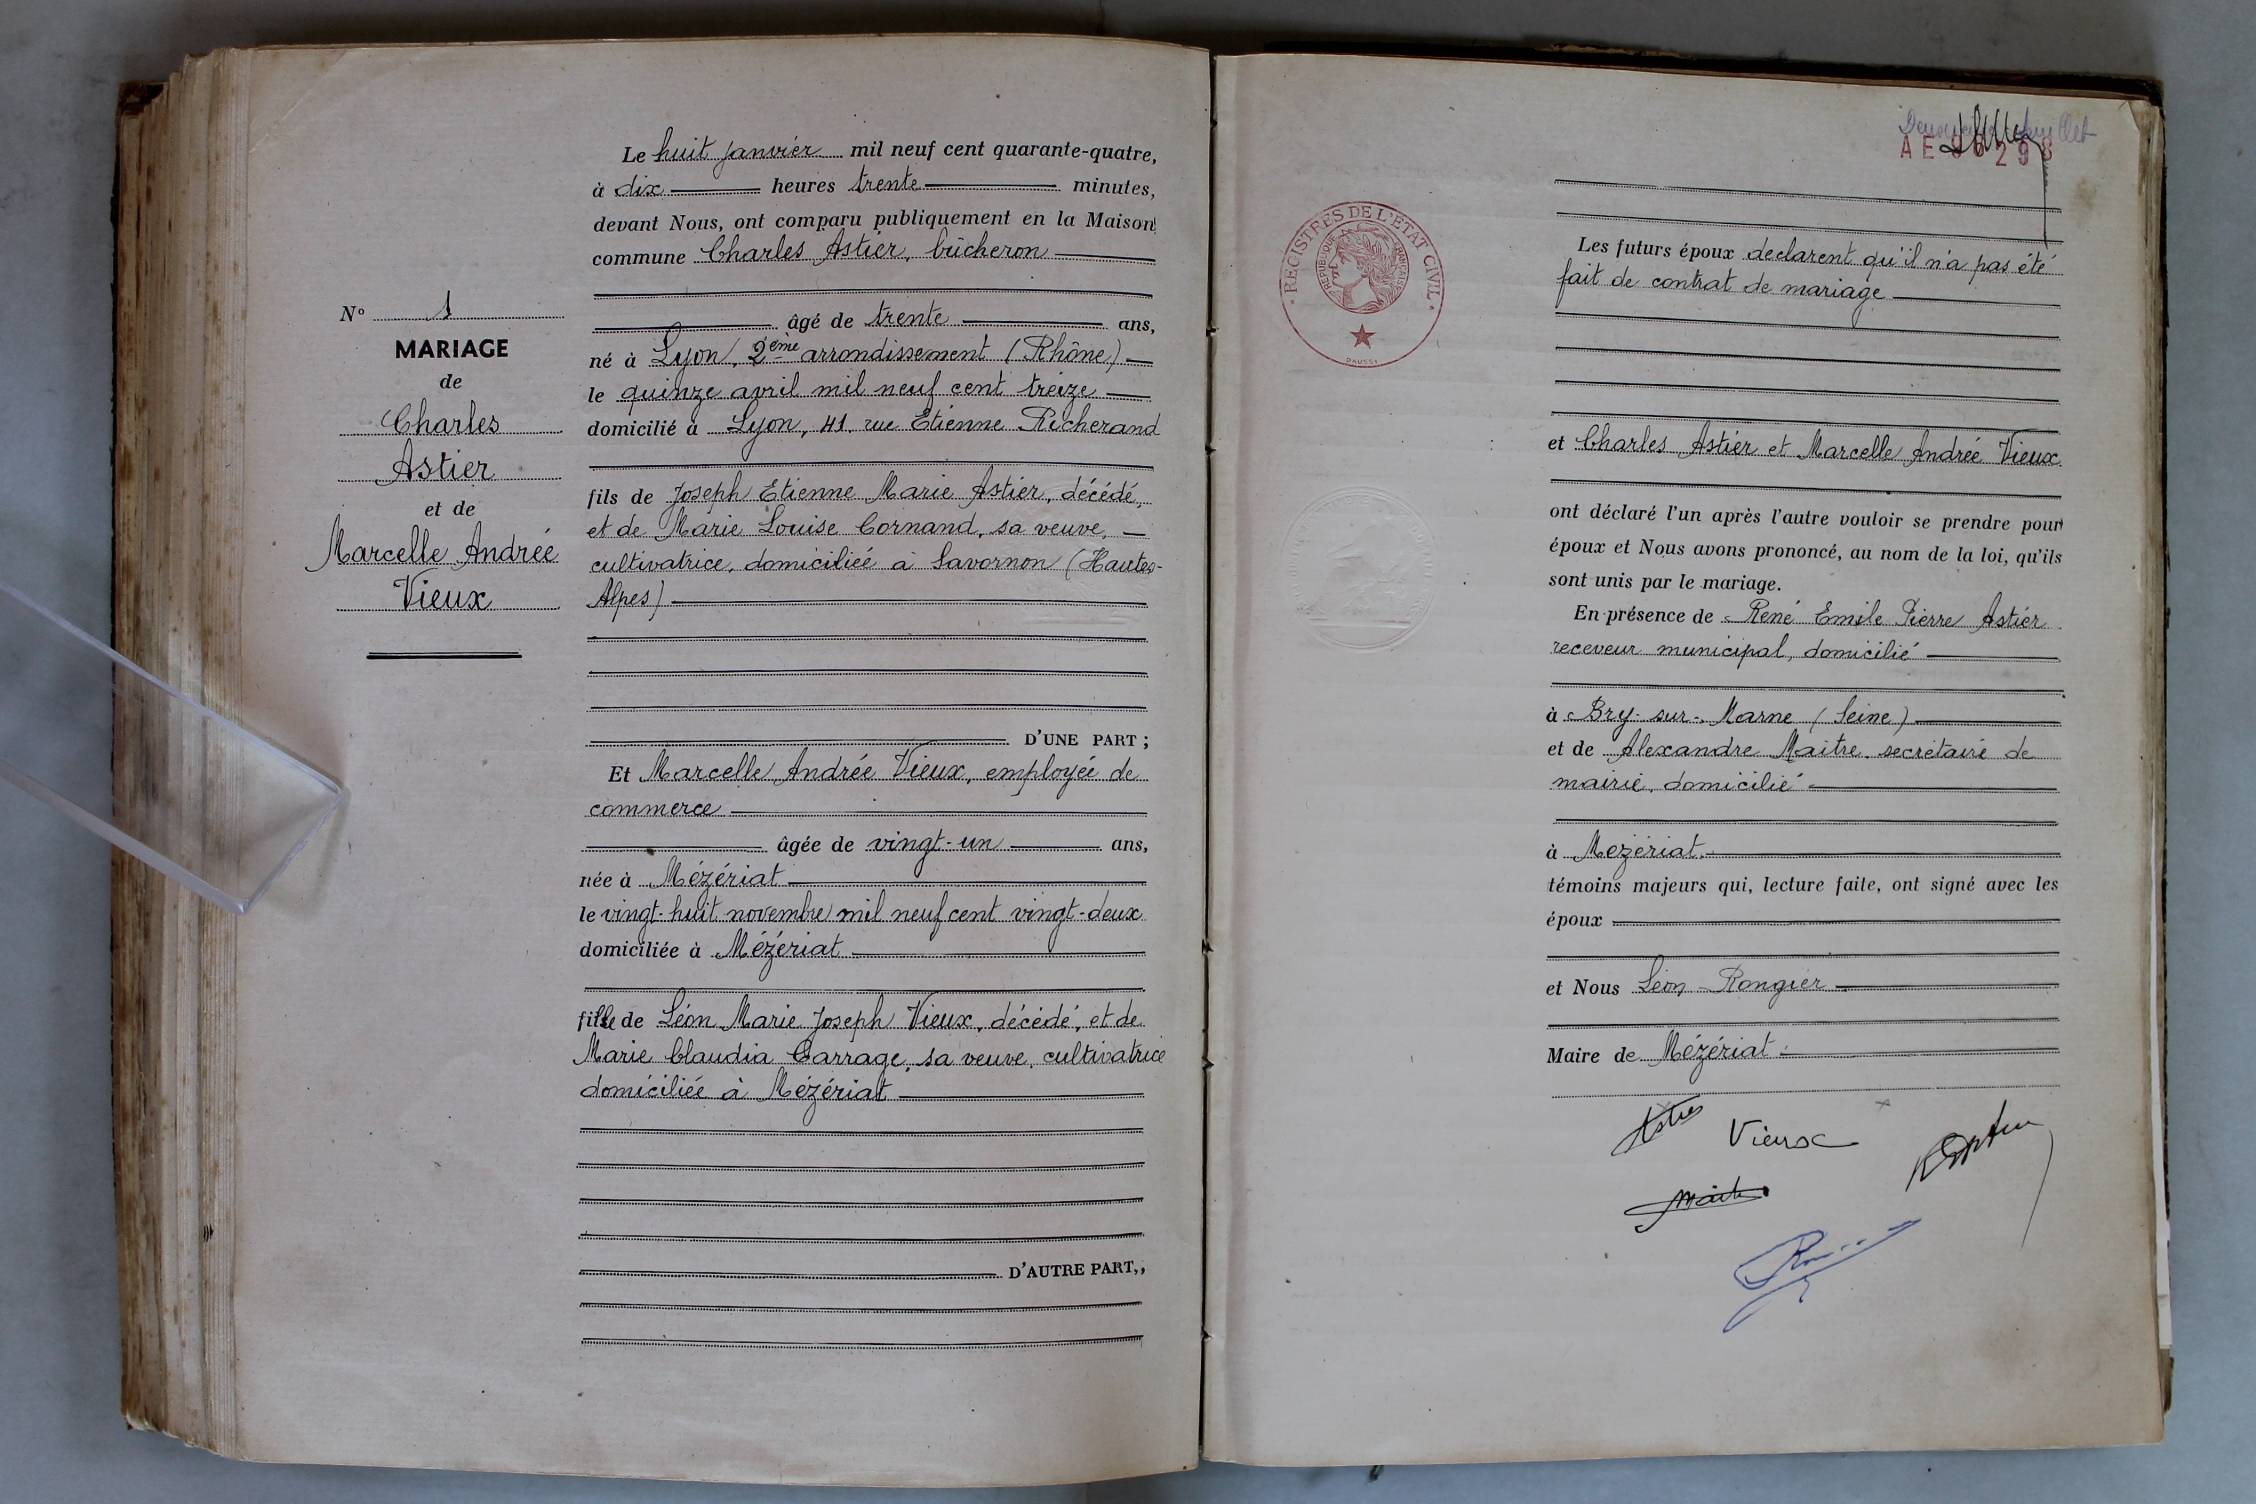 N° 1
MARIAGE
de
Charles
Astier
et de
Marcelle Andrée
Vieux
Le huit janvier mil neuf cent quarante-quatre,
à dix heures trente minutes,
devant Nous, ont comparu publiquement en la Maison
commune Charles Astier, bûcheron
âgé de trente ans,
né à Lyon, 2ème arrondissement (Rhône)
le quinze avril mil neuf cent treize
domicilié à Lyon, 41, rue Etienne Richerand
fils de Joseph Etienne Marie Astier, décédé,
et de Marie Louise Cornand, sa veuve,
cultivatrice, domiciliée à Savornon (Hautes-
Alpes)
D'UNE PART ;
Et Marcelle Andrée Vieux, employée de
commerce
âgée de vingt-un ans,
née à Mézériat
le vingt-huit novembre mil neuf cent vingt-deux
domiciliée à Mézériat
fille de Léon Marie Joseph Vieux, décédé, et de
Marie Claudia Carrage, sa veuve, cultivatrice
domiciliée à Mézériat
D'AUTRE PART,,
AE
REGISTRES DE L'ETAT CIVIL
REPUBLIQUE FRANCAISE
DAUSSI
Les futurs époux déclarent qu'il n'a pas été
fait de contrat de mariage
et Charles Astier et Marcelle Andrée Vieux
ont déclaré l'un après l'autre vouloir se prendre pour
époux et Nous avons prononcé, au nom de la loi, qu'ils
sont unis par le mariage.
En présence de René Emile Pierre Astier
receveur municipal, domicilié
à Bry-sur-Marne (Seine)
et de Alexandre Maitre, secrétaire de
mairie, domicilié
à Mézériat.
témoins majeurs qui, lecture faite, ont signé avec les
époux
et Nous Léon Rongier
Maire de Mézériat
Vieux
Maitre